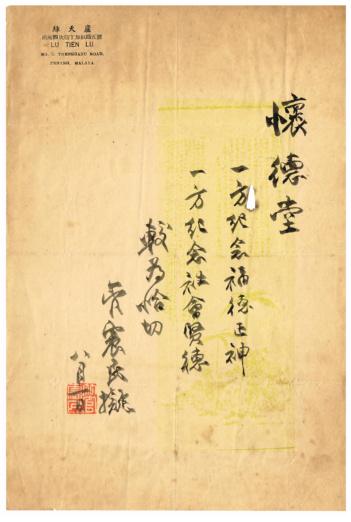 廬天綠
LU TIEN LU
TRENGGANU ROAD,
PENANG, MALAYA.
懷德堂
一方紀念福德正神
一方紀念社會賢德
較為恰切
管震民擬
八月一日